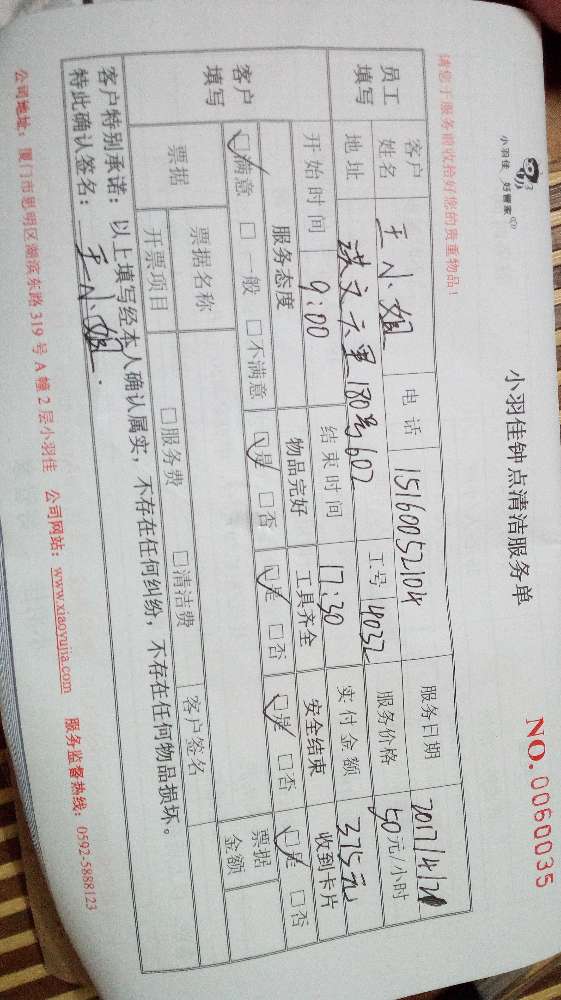 小羽佳 好管家
小羽佳钟点清洁服务单
NO. 0060035
请您于服务前收拾好您的贵重物品！
员工填写 客户姓名 王小姐 电话 15160052104 服务日期 2017/4/21
地址 洪文六里180号602 工号 4032 服务价格 50元/小时
开始时间 9:00 结束时间 17:30 实付金额 375元
客户填写 服务态度 物品完好 工具齐全 安全结束 收到卡片
☑满意 □一般 □不满意 ☑是 □否 ☑是 □否 ☑是 □否 ☑是 □否
票据 票据名称 客户签名 票据金额
开票项目 □服务费 □清洁费
客户特别承诺：以上填写经本人确认属实，不存在任何纠纷，不存在任何物品损坏。
特此确认签名：王小姐.
公司地址：厦门市思明区湖滨东路319号A幢2层小羽佳 公司网站：www.xiaoyujia.com 服务监督热线：0592-5888123